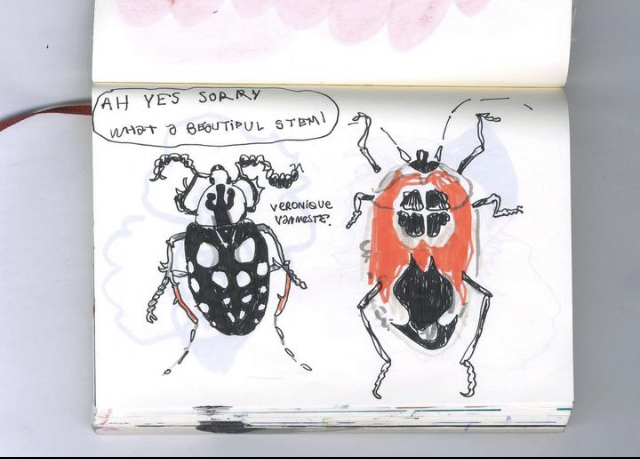 AH YES SORRY
WHAT a BEaUTIFUL STEM!
VERONIQUE
VANMESTE?